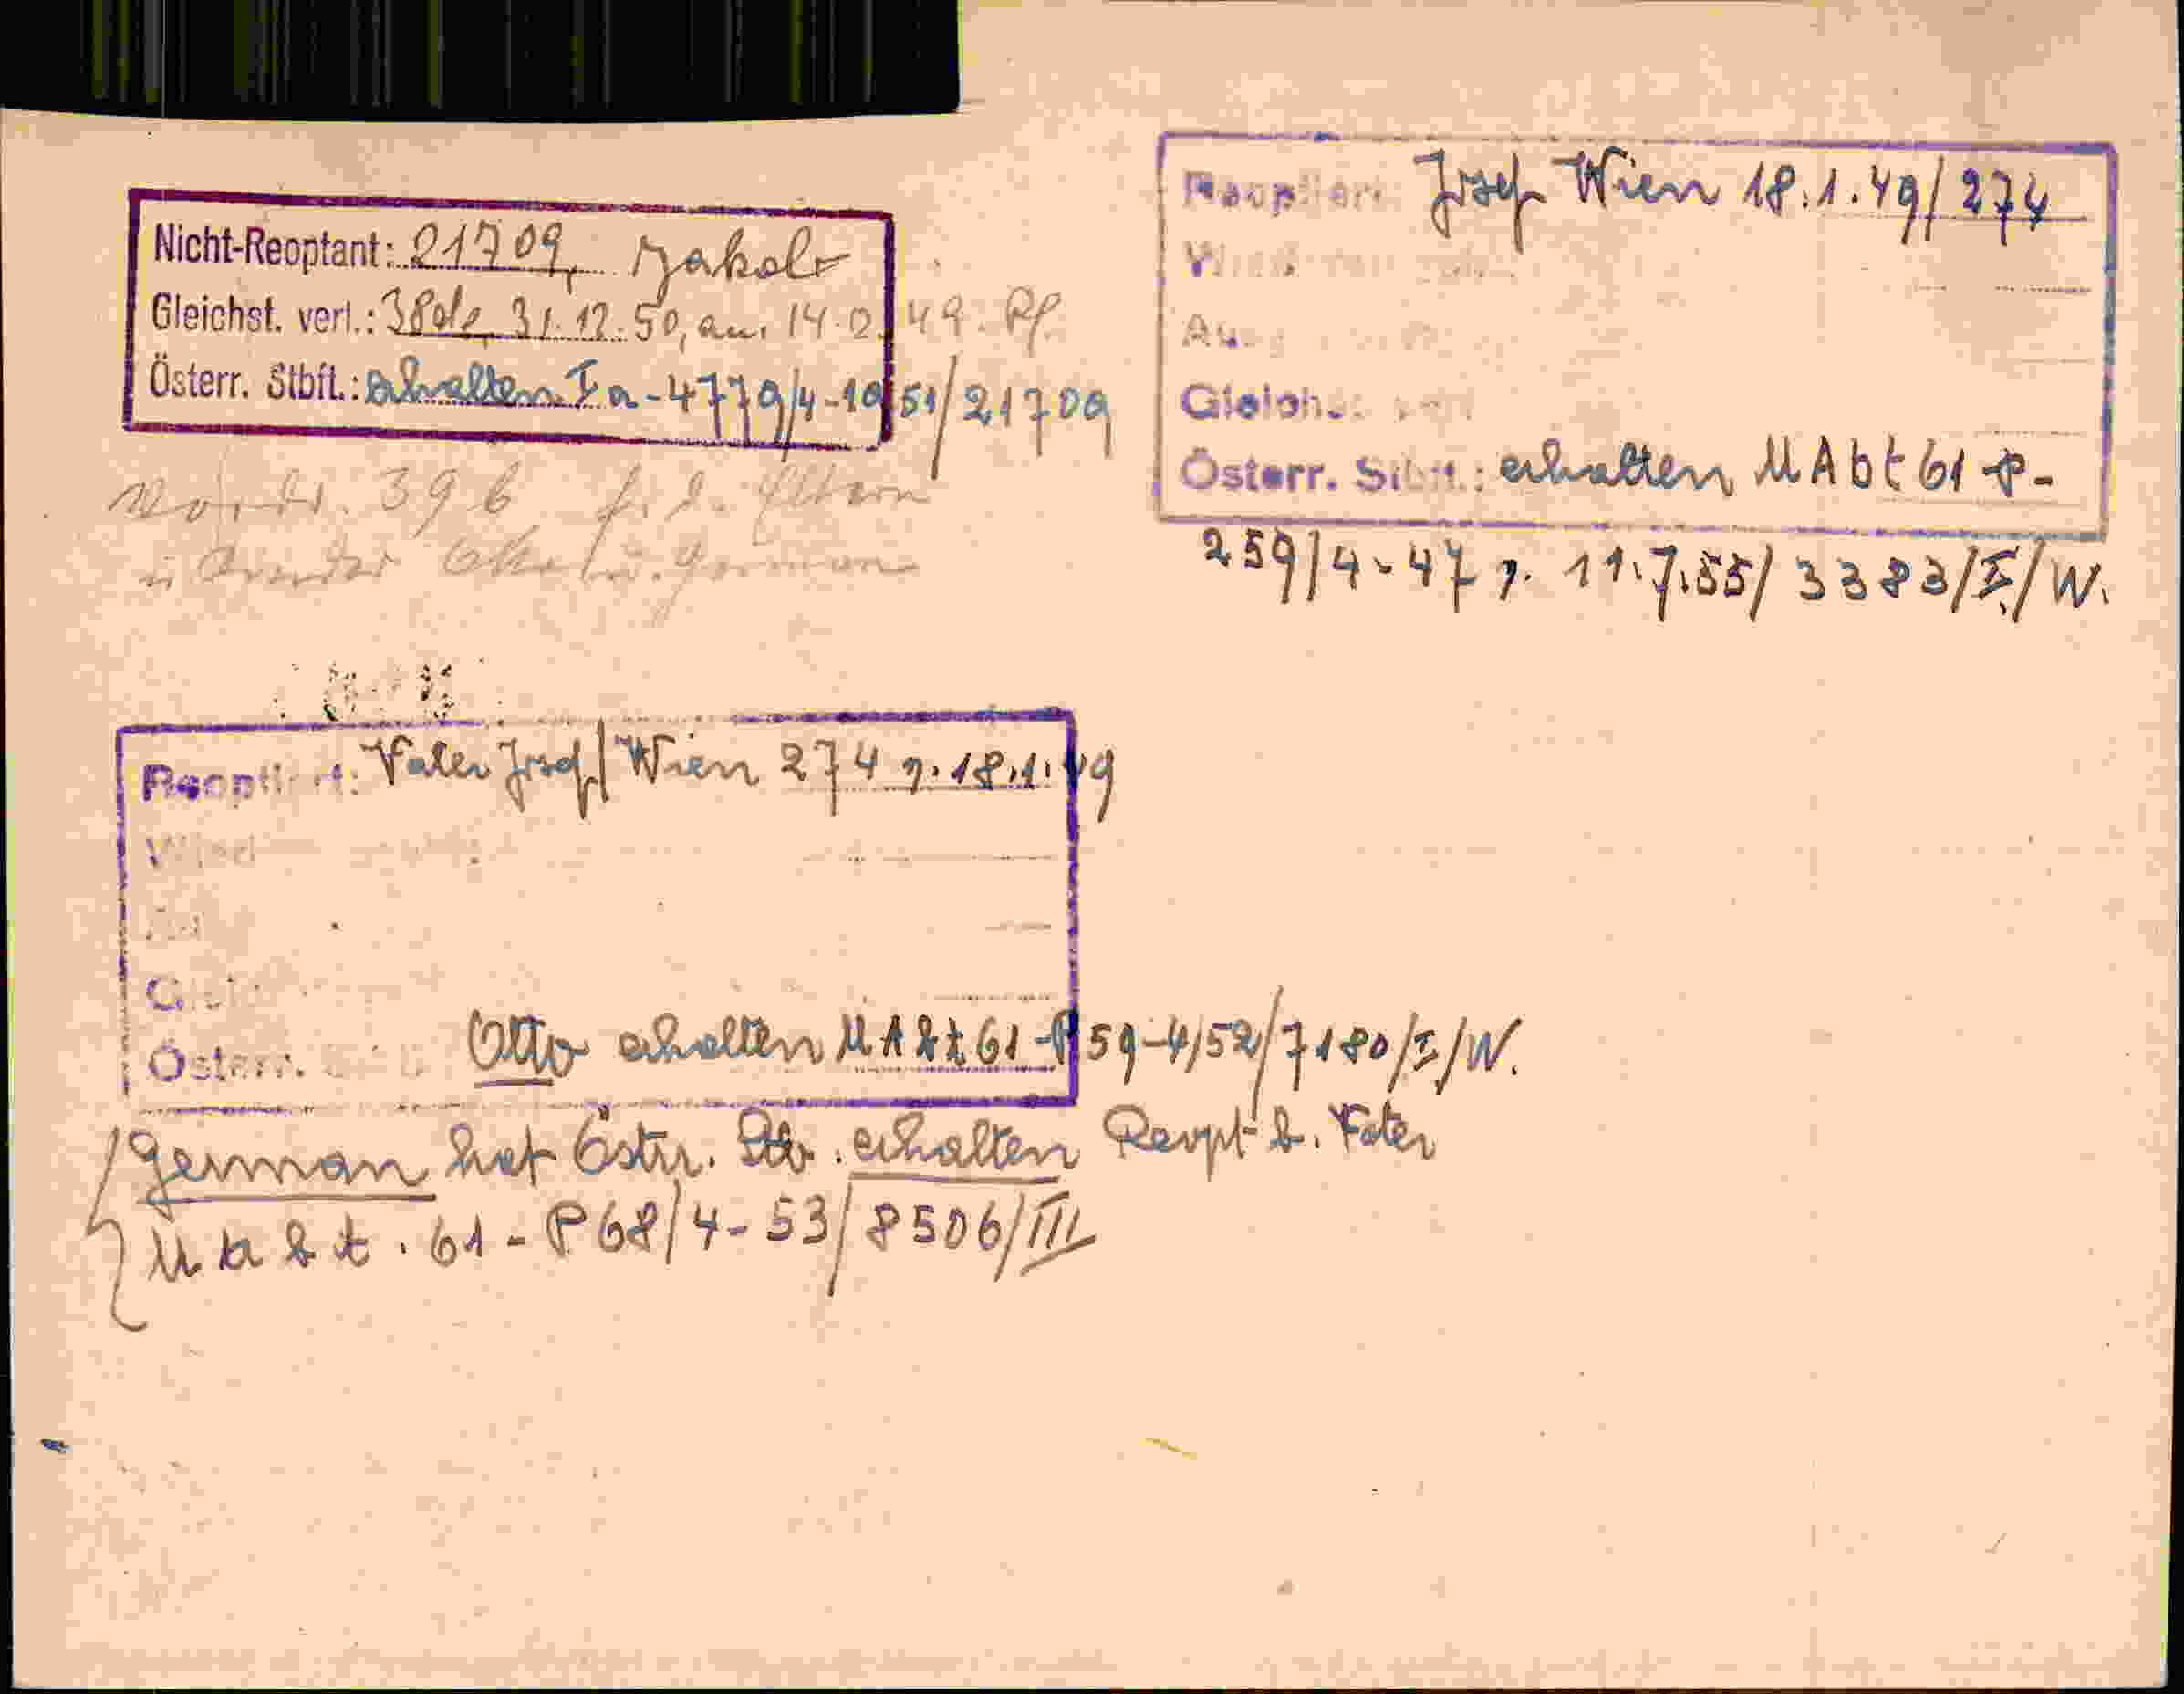 Nicht-Reoptant: 21709, Jakob
Gleichst. verl.: 31.12.50, am 14.2.49. Rf.
Österr. Stbft.: erhalten Ia-4779/4-1951/21709
39 b f. d. Eltern
u Kinder Otto u. German
Reoptiert: Josef Wien 18.1.49/274
Gleichst. verl.
Österr. Stbft.: erhalten MAbt 61 P-
259/4-47 v. 11.7.55/3383/I/W.
Reoptiert: Vater Josef/Wien 274 v. 18.1.49
Österr. Otto erhalten MAbt 61-P59-4/52/7180/I/W.
German hat Östr. Stb. erhalten Reopt b. Vater
M Abt. 61-P68/4-53/8506/III